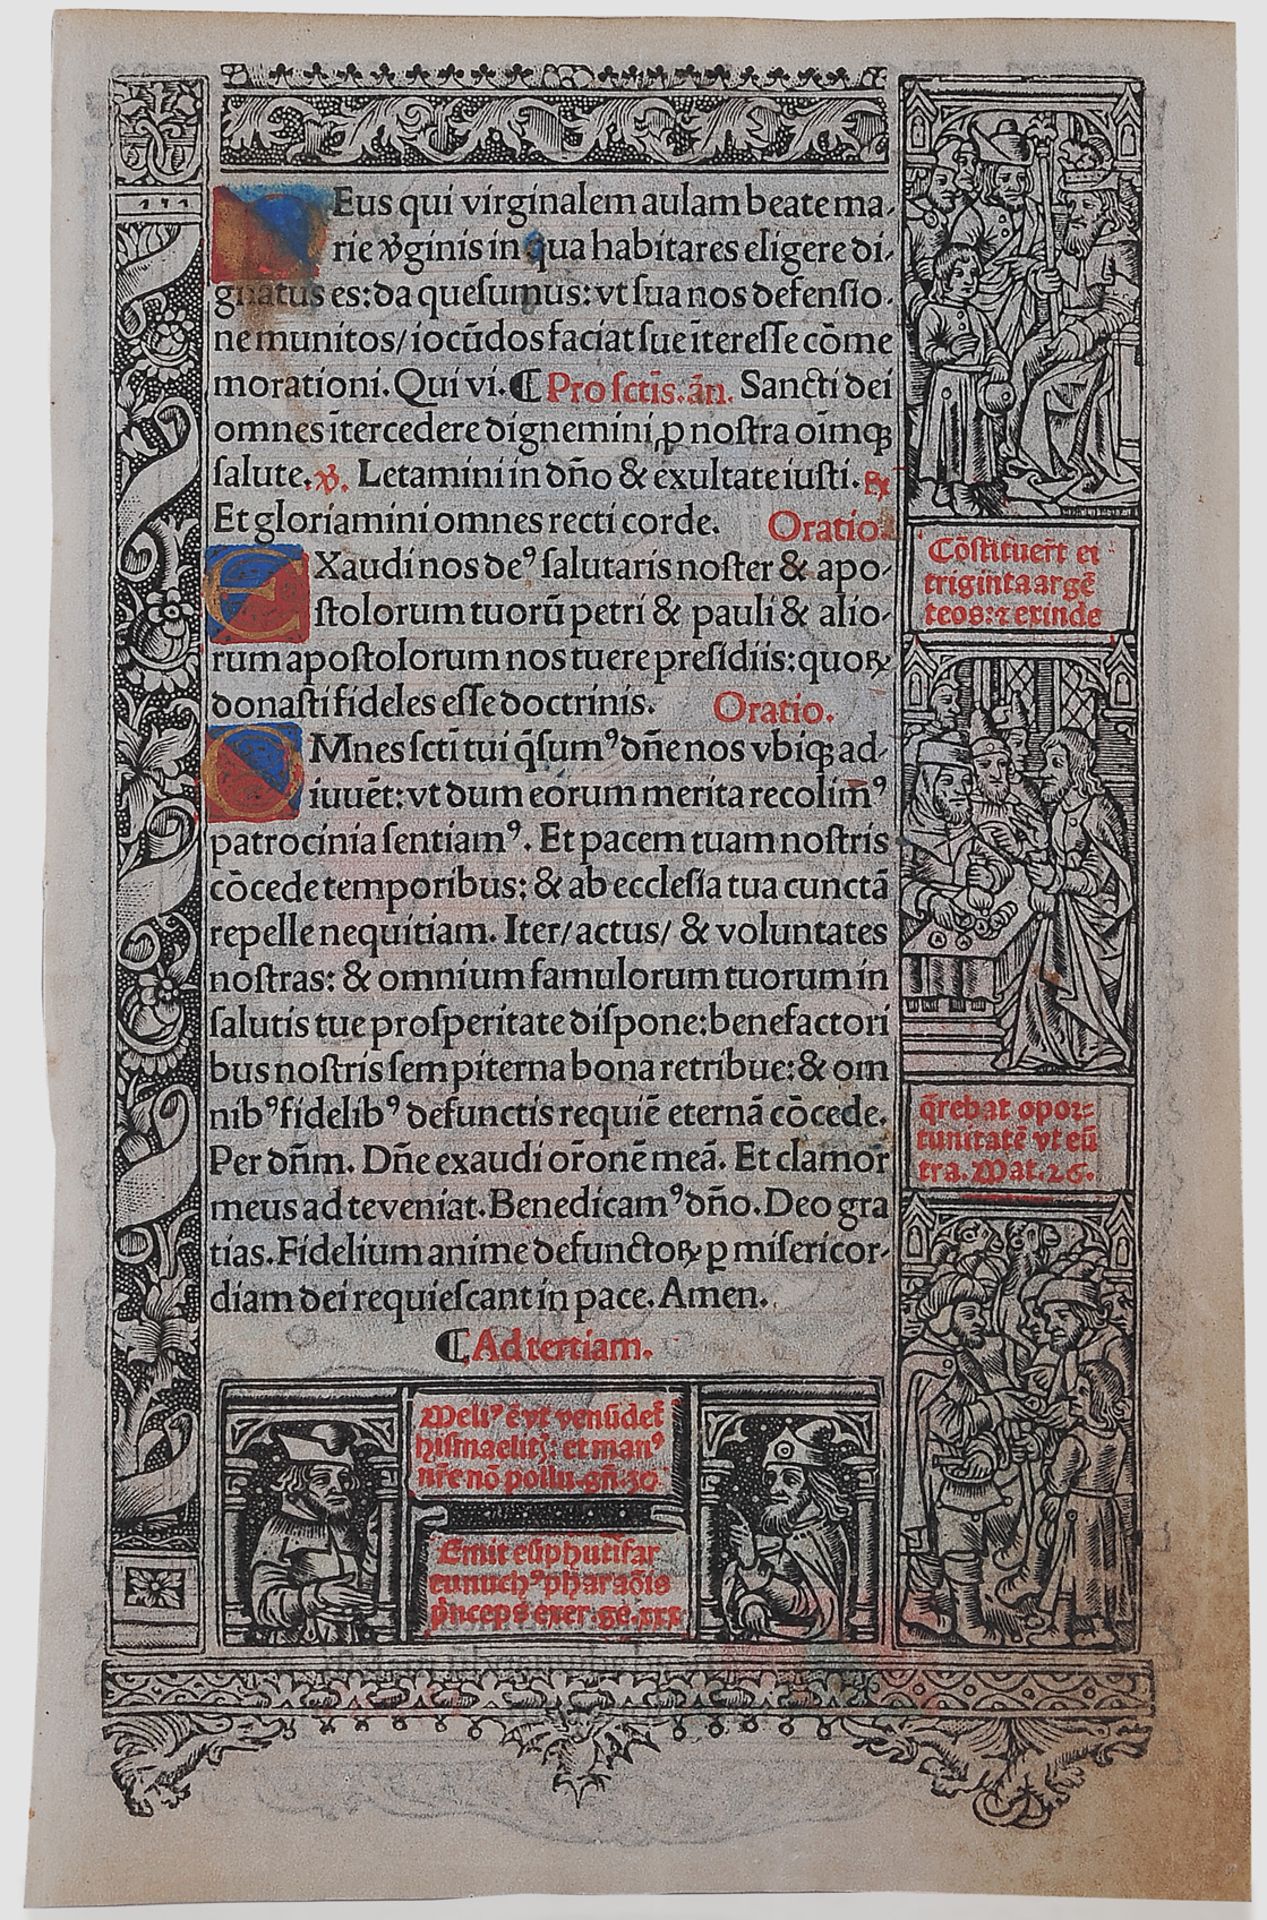 Eus qui virginalem aulam beate ma-
rie v̄ginis in qua habitares eligere di-
gnatus es: da quesumus: vt sua nos defensio-
ne munitos/ iocūdos faciat sue īteresse cōme
morationi. Qui vi. ¶ Pro sctīs. ān. Sancti dei
omnes ītercedere dignemini ꝓ nostra oīmqꝫ
salute. ℣. Letamini in dn̄o & exultate iusti. ℟
Et gloriamini omnes recti corde. Oratio.
EXaudi nos deꝰ salutaris noster & apo-
stolorum tuorū petri & pauli & alio-
rum apostolorum nos tuere presidiis: quoꝝ
donasti fideles esse doctrinis. Oratio.
OMnes sctī tui q̄sumꝰ dn̄e nos vbiqꝫ ad-
iuuēt: vt dum eorum merita recolimꝰ
patrocinia sentiamꝰ. Et pacem tuam nostris
cōcede temporibus: & ab ecclesia tua cunctā
repelle nequitiam. Iter/ actus/ & voluntates
nostras: & omnium famulorum tuorum in
salutis tue prosperitate dispone: benefactori
bus nostris sempiterna bona retribue: & om
nibꝰ fidelibꝰ defunctis requiē eternā cōcede.
Per dn̄m. Dn̄e exaudi or̄onē meā. Et clamor
meus ad te veniat. Benedicamꝰ dn̄o. Deo gra
tias. Fidelium anime defunctoꝝ ꝑ misericor-
diam dei requiescant in pace. Amen.
¶ Ad tertiam.
Cōstituer̄t ei
triginta argē
teos: ⁊ exinde
q̄rebat opor=
tunitatē vt eū
tra. Mat. 26.
Meliꝰ ē vt venūdet̄
hismaelitꝭ: et manꝰ
nr̄e nō pollu. gn̄. 30
Emit eū phutīfar
eunuchꝰ pharaōis
p̄nceps exer. ge. xxx